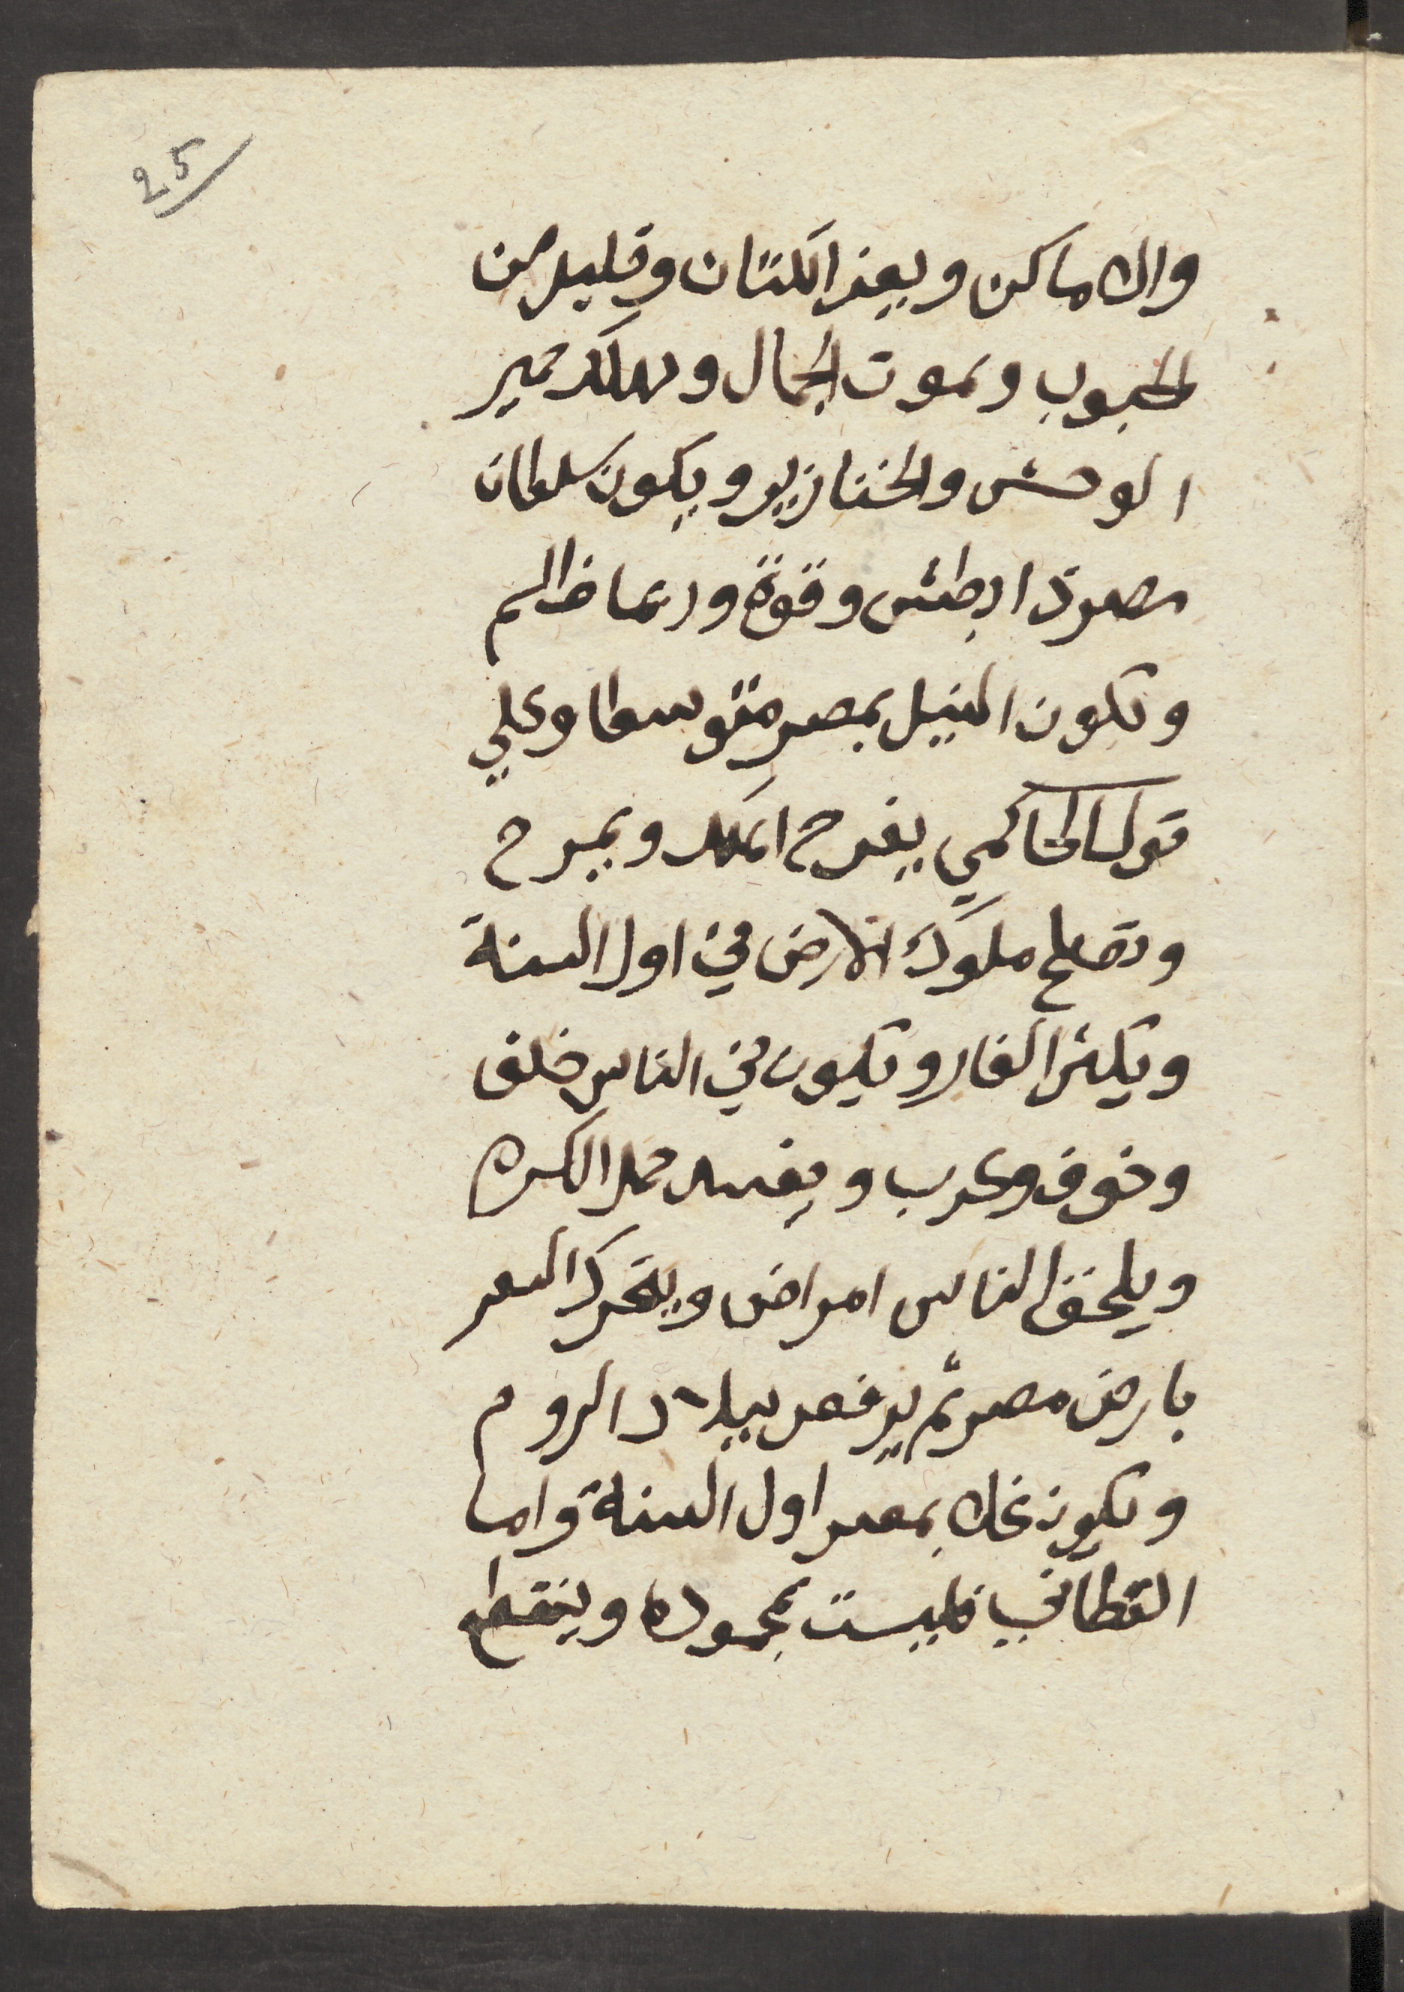 25
والاماكن ويعز الكتان وقليل من
الحبوب وتموت الجمال وتهلك حمير
الوحش والخنازير ويكون سلطان
مصر ذا بطش وقوة وربما ظالم
وتكون النيل بمصر متوسطا وعلي
قول الحاكمي يفرح الملك ويمرح
وتصلح ملوك الارض في اول السنة
ويكثر الفار ويكون في الناس خلف
وخوف وكرب ويفسد حمل الكرم
ويلحق الناس امراض ويتحرك السعر
بارض مصر ثم يرخص ببلاد الروم
وتكون غلاء بمصر اول السنة واما
القطاني فليست بمجوده وينقطع